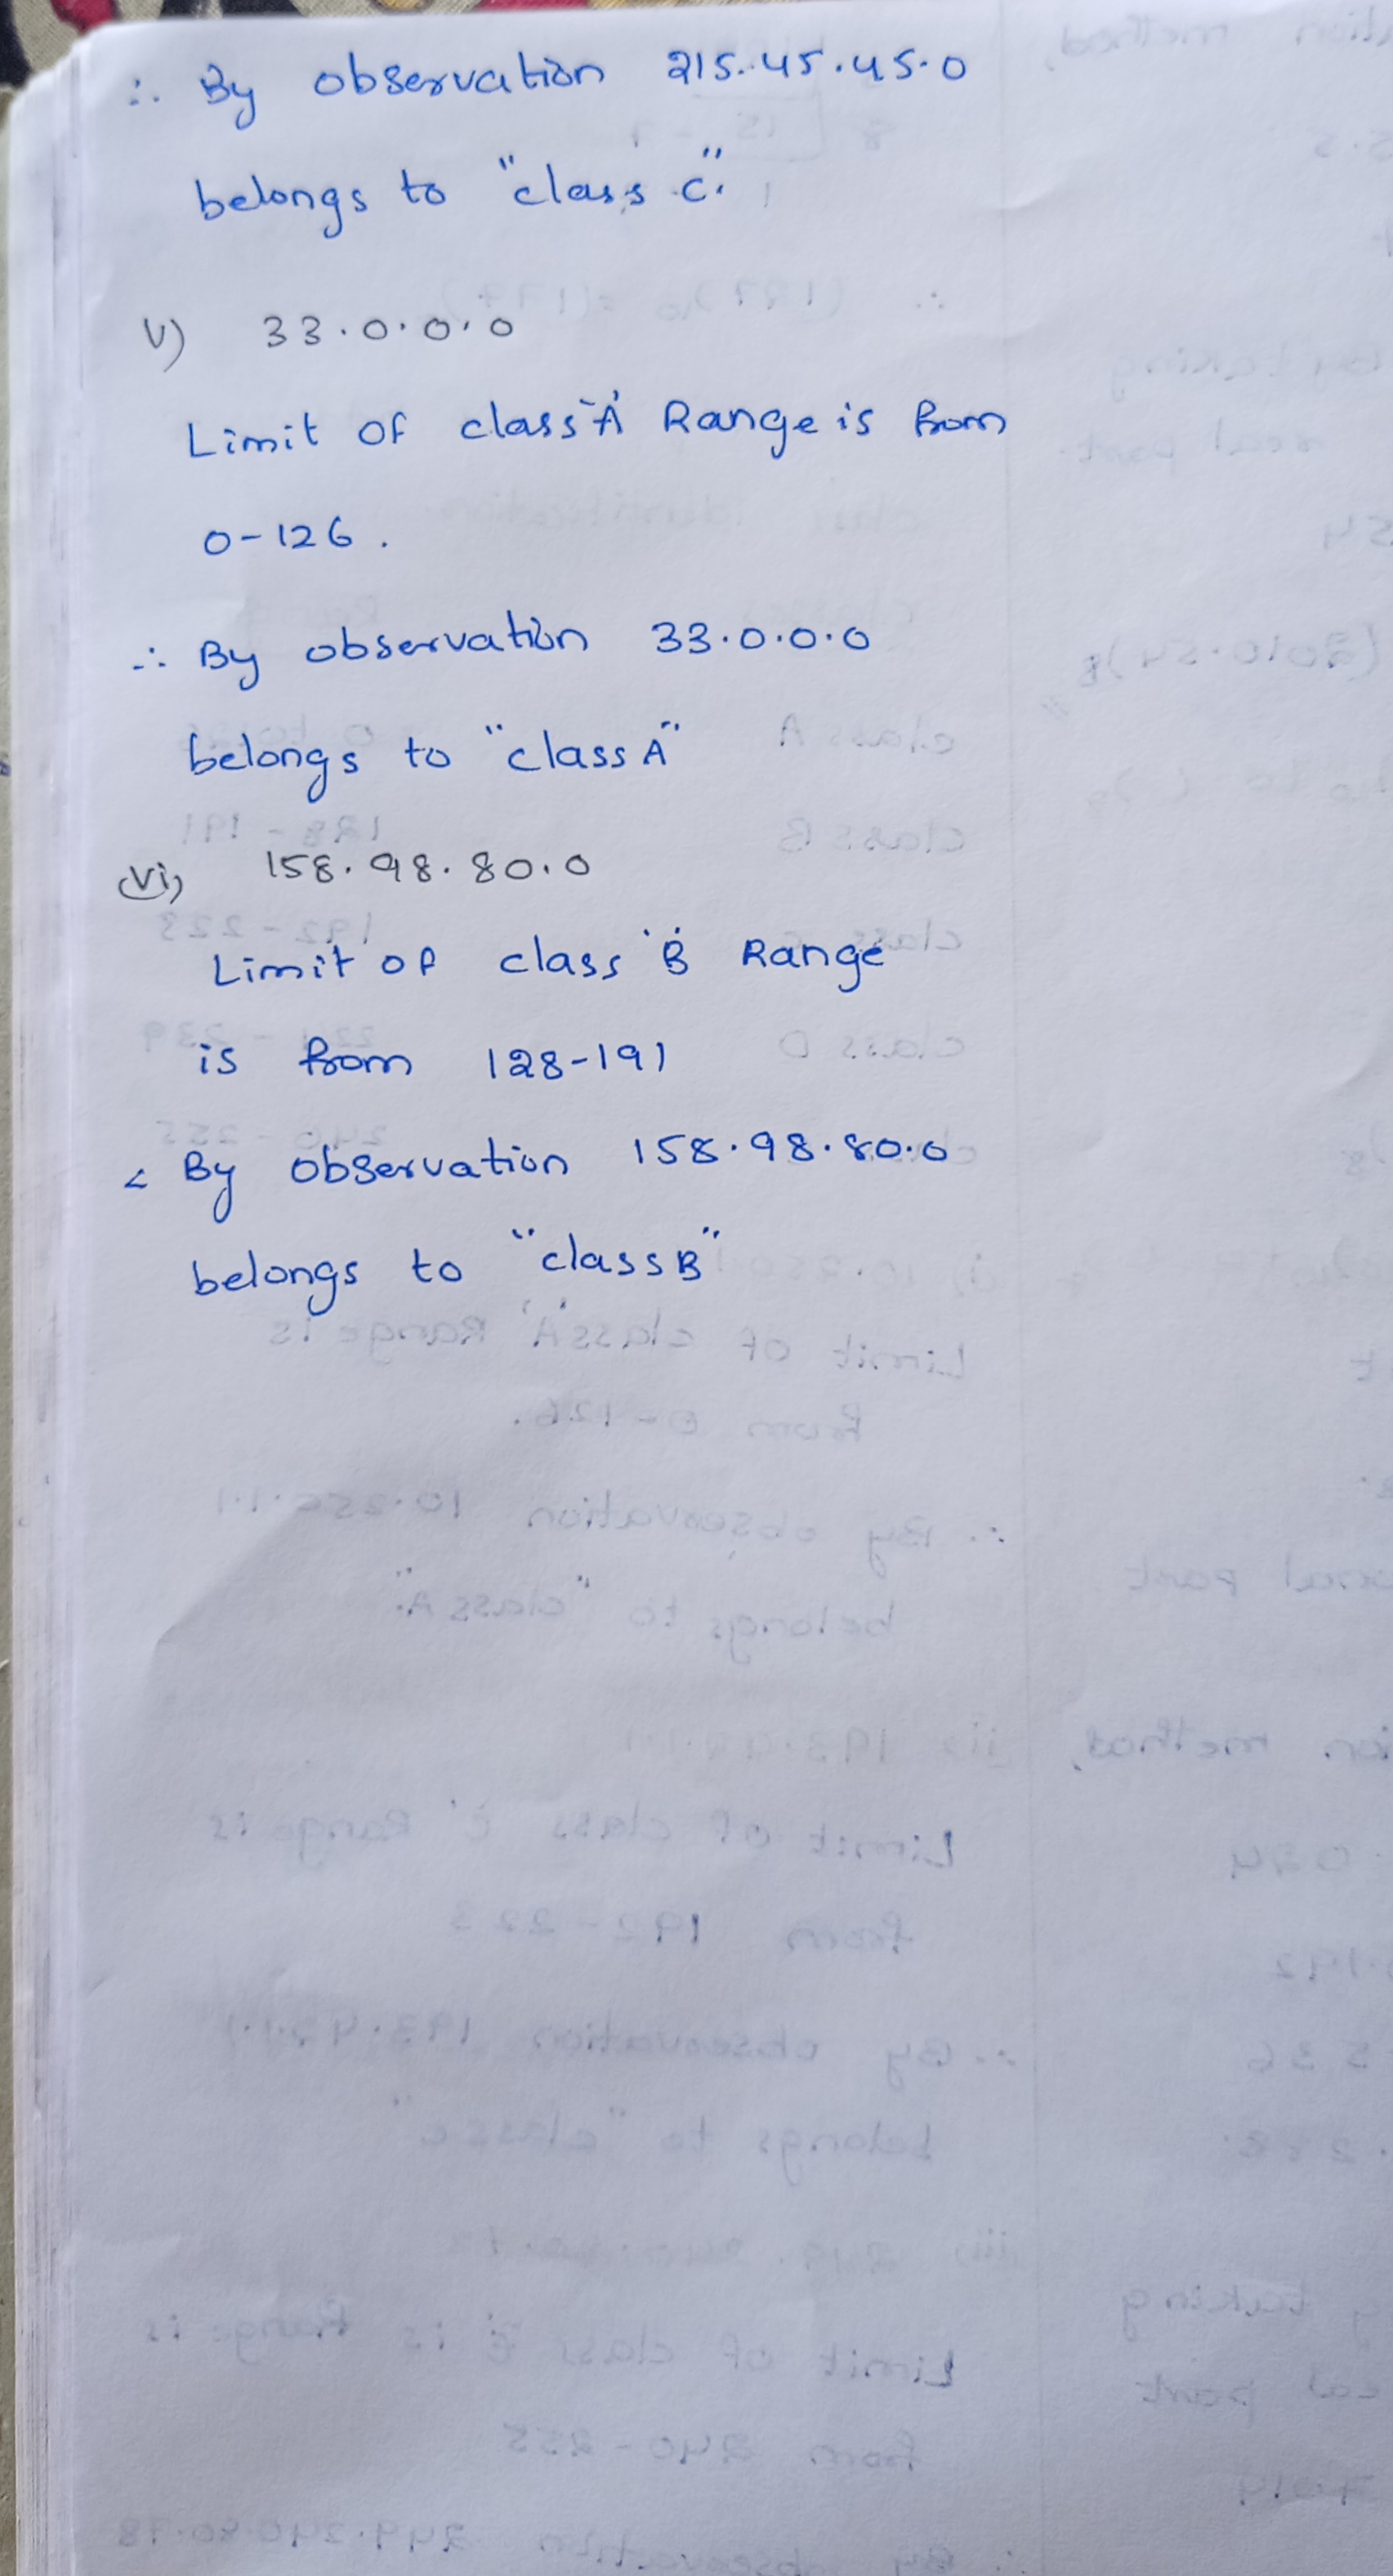 ∴ By observation 215.45.45.0
belongs to "class C."
V) 33.0.0.0
Limit of class "A" Range is from
0-126.
∴ By observation 33.0.0.0
belongs to "class A"
(vi) 158.98.80.0
Limit of class 'B' Range
is from 128-191
∴ By observation 158.98.80.0
belongs to "class B"